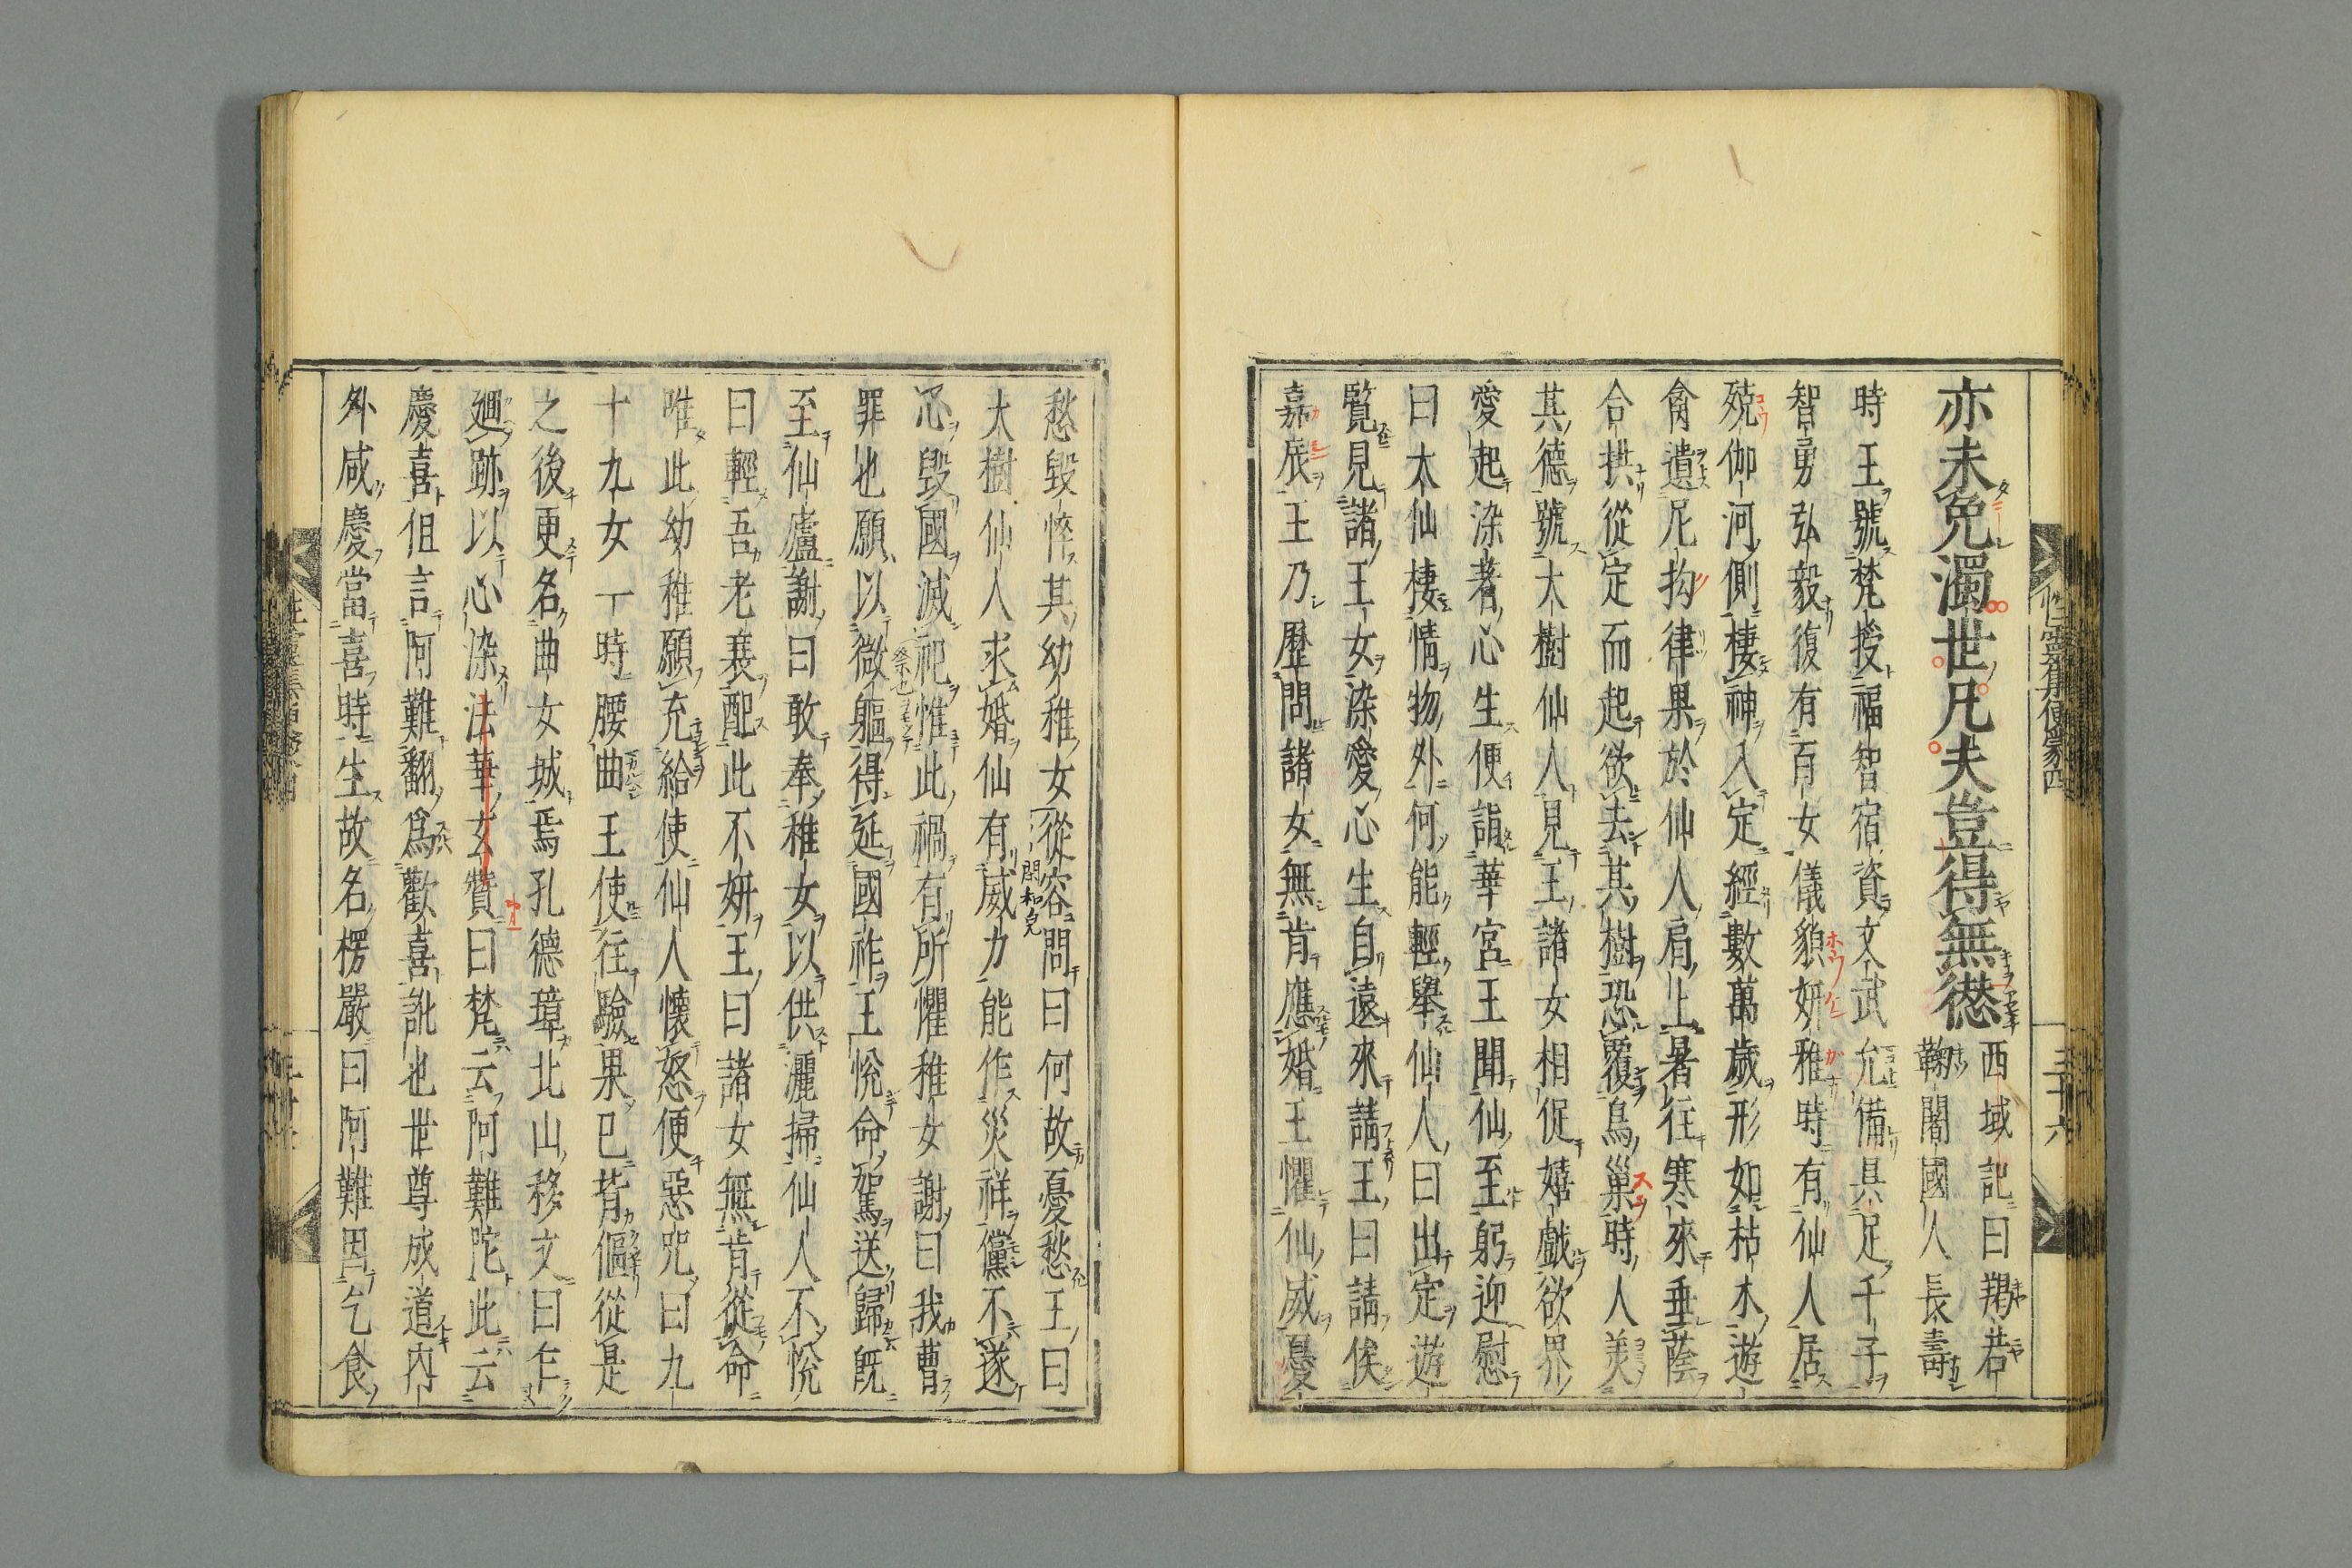 亦未免濁世凡夫豈得無僁
西域記曰羯若
鞠闍國人長壽
時王號梵授福智宿資文武允備具足千子
智勇弘毅復有百女儀貌妍雅時有仙人居
殑伽河側棲神入定經數萬歲形如枯木遊
禽遺尼拘律果於仙人肩上暑往寒來垂蔭
合拱從定而起欲去其樹恐覆鳥巢時人美
其德號大樹仙人見王諸女相從嬉戲欲界
愛起染著心生便詣華宮王聞仙至躬迎慰
曰大仙棲情物外何能輕舉仙人曰出定遊
覽見諸王女染愛心生自遠來請王曰請俟
嘉辰王乃歷問諸女無肯應婚王懼仙威憂
愁毀悴其幼稚女從容問曰何故憂愁王曰
大樹仙人求婚仙有威力能作災祥儻不遂
心毀國滅祀惟此禍有所懼稚女謝曰我曹
罪也願以微軀得延國祚王悅命駕送歸既
至仙廬謝曰敢奉稚女以供灑掃仙人不悅
曰輕吾老叟配此不妍王曰諸女無肯從命
唯此幼稚願充給使仙人懷怒便惡咒曰九
十九女一時腰曲王使往驗果已背傴從是
之後更名曲女城焉孔德璋北山移文曰乍
廻跡以心染法華玄贊曰梵云阿難陀此云
慶喜但言阿難翻爲歡喜訛也世尊成道內
外咸慶當喜時生故名楞嚴曰阿難因乞食
性靈集便蒙四
三十六